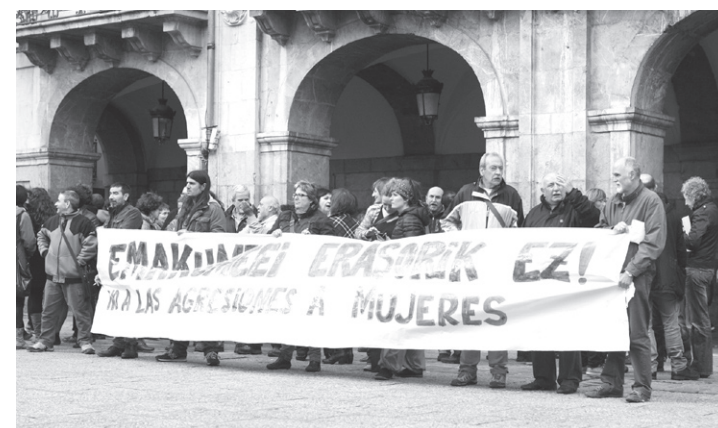 EMAKUMEEI ERASORIK EZ!
NO A LAS AGRESIONES A MUJERES